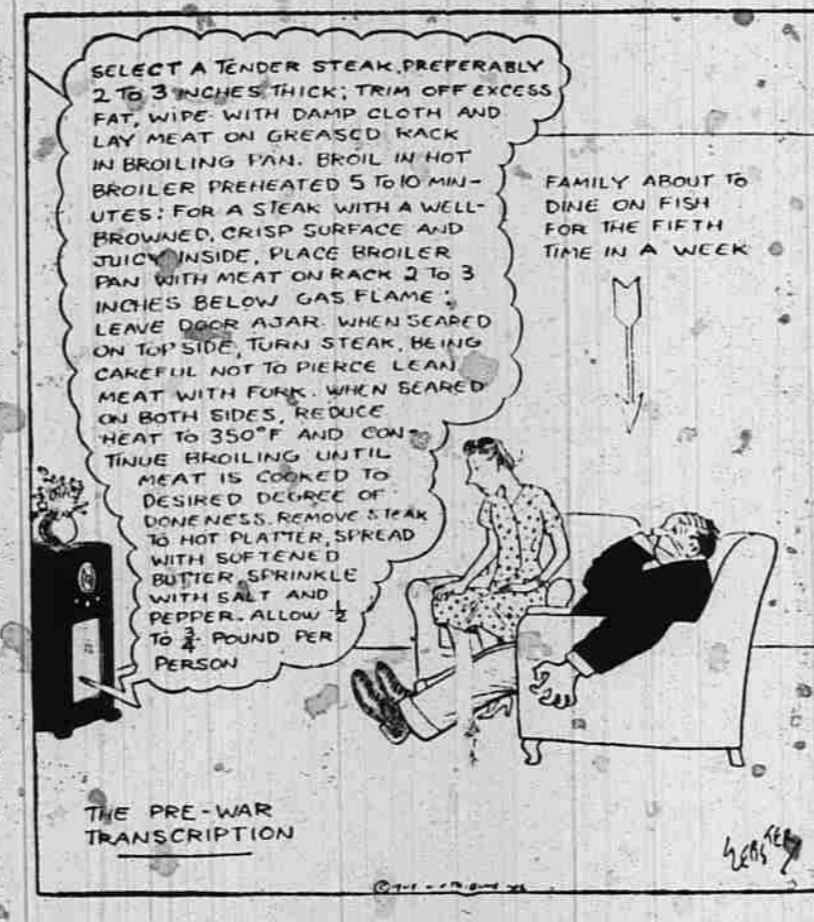 SELECT A TENDER STEAK, PREFERABLY
2 TO 3 INCHES THICK; TRIM OFF EXCESS
FAT, WIPE WITH DAMP CLOTH AND
LAY MEAT ON GREASED RACK
IN BROILING PAN. BROIL IN HOT
BROILER PREHEATED 5 TO 10 MIN-
UTES: FOR A STEAK WITH A WELL-
BROWNED, CRISP SURFACE AND
JUICY INSIDE, PLACE BROILER
PAN WITH MEAT ON RACK 2 TO 3
INCHES BELOW GAS FLAME:
LEAVE DOOR AJAR. WHEN SEARED
ON TOP SIDE, TURN STEAK, BEING
CAREFUL NOT TO PIERCE LEAN
MEAT WITH FORK. WHEN SEARED
ON BOTH SIDES, REDUCE
HEAT TO 350°F AND CON-
TINUE BROILING UNTIL
MEAT IS COOKED TO
DESIRED DEGREE OF
DONENESS. REMOVE STEAK
TO HOT PLATTER, SPREAD
WITH SOFTENED
BUTTER, SPRINKLE
WITH SALT AND
PEPPER. ALLOW ½
TO ¾ POUND PER
PERSON
FAMILY ABOUT TO
DINE ON FISH
FOR THE FIFTH
TIME IN A WEEK
THE PRE-WAR
TRANSCRIPTION
WEBSTER